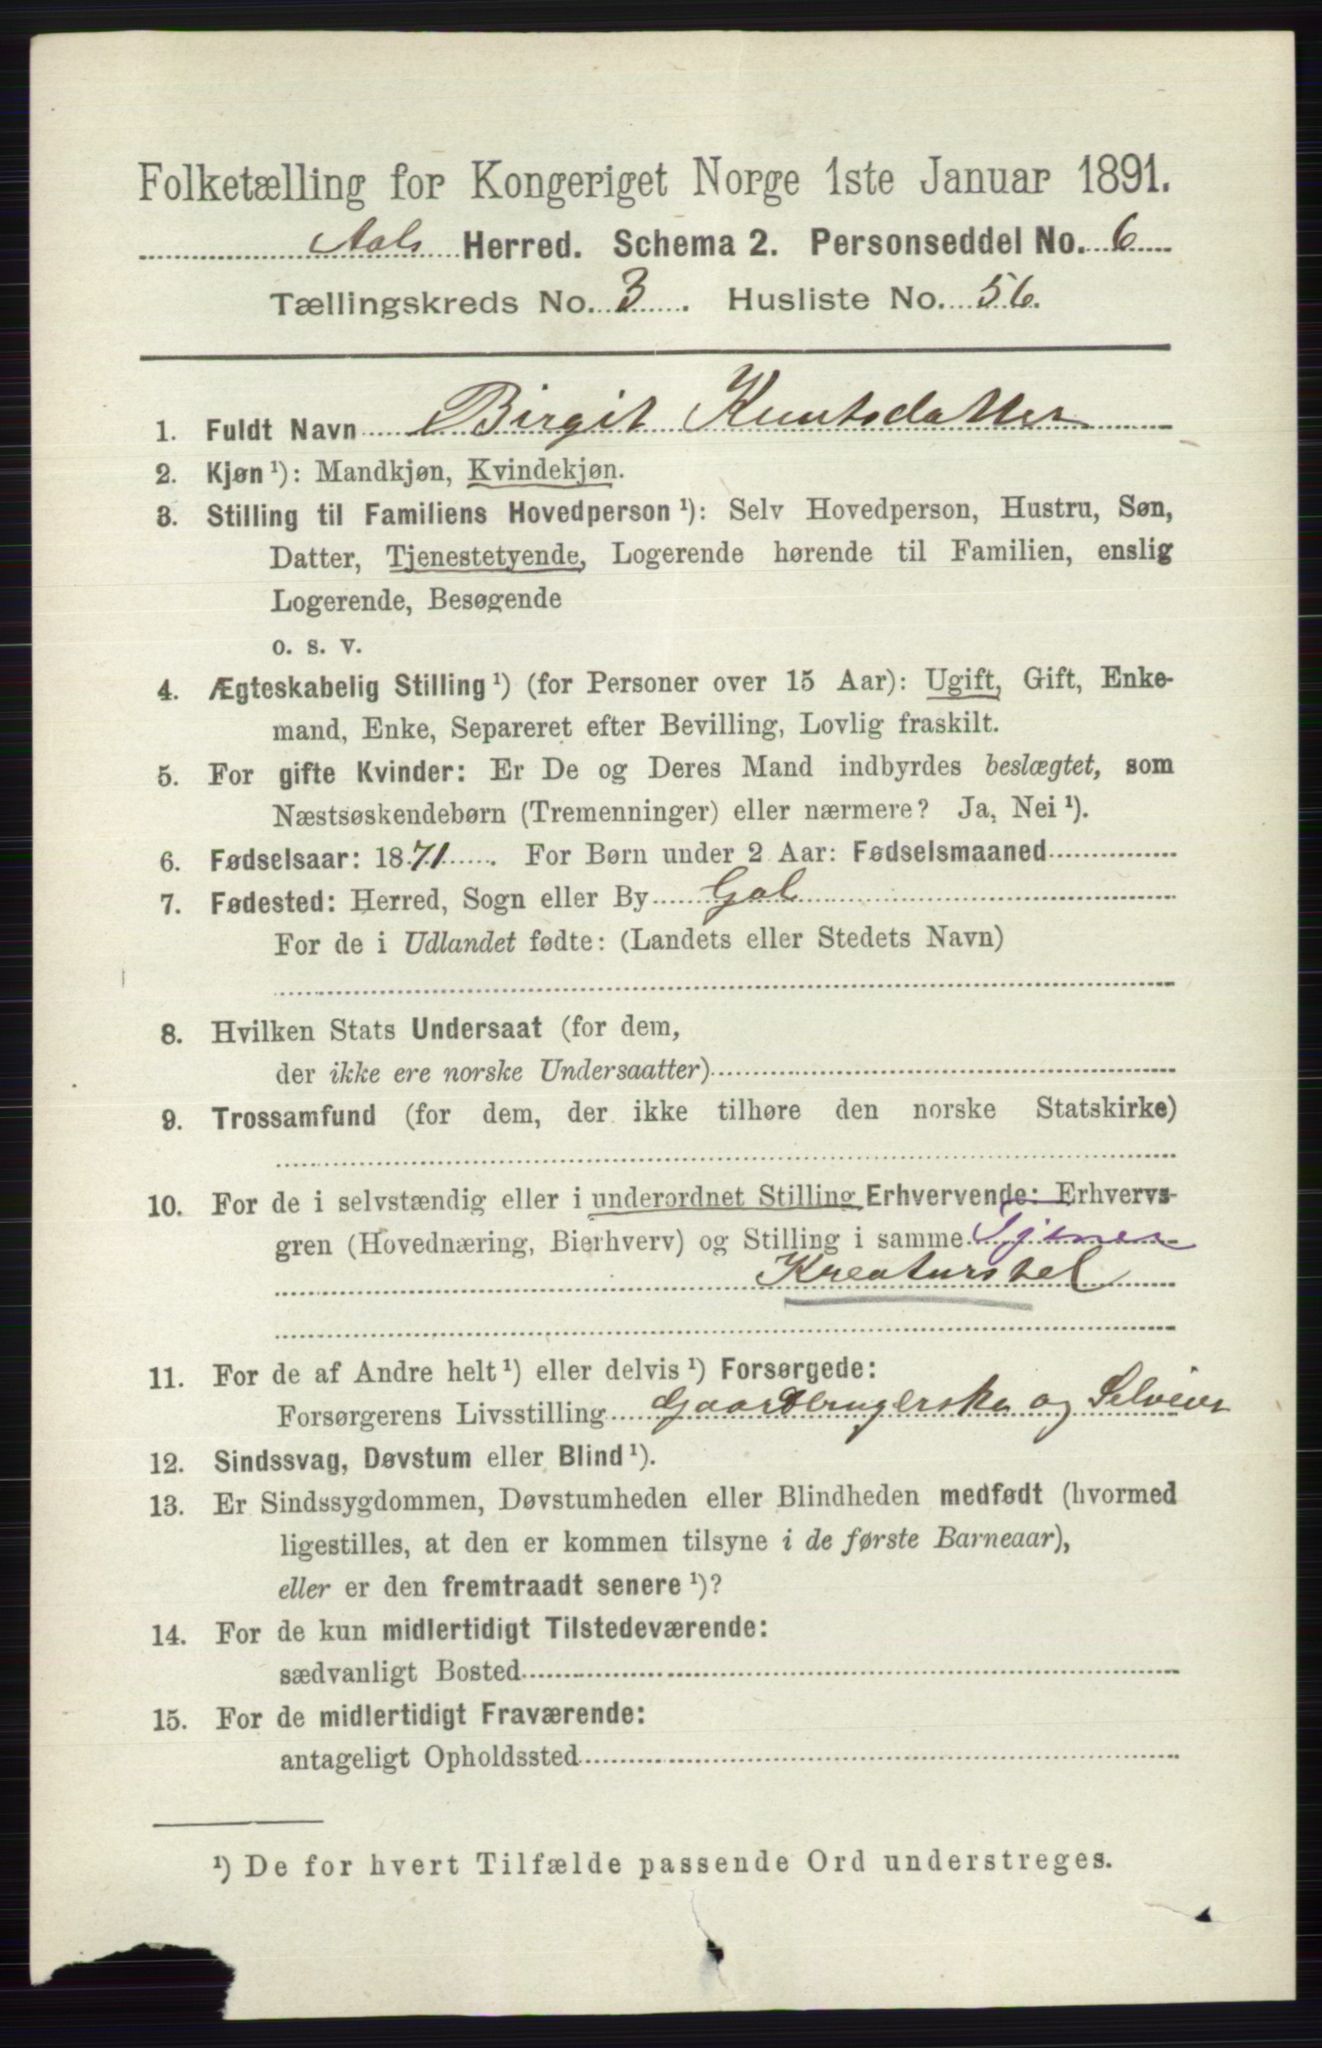 Folketælling for Kongeriget Norge 1ste Januar 1891.
Aals Herred. Schema 2. Personseddel No. 6
Tællingskreds No. 3. Husliste No. 56.
1. Fuldt Navn Birgit Knutsdatter
2. Kjøn ¹): Mandkjøn, Kvindekjøn.
3. Stilling til Familiens Hovedperson ¹): Selv Hovedperson, Hustru, Søn,
Datter, Tjenestetyende, Logerende hørende til Familien, enslig
Logerende, Besøgende
o. s. v.
4. Ægteskabelig Stilling ¹) (for Personer over 15 Aar): Ugift, Gift, Enke-
mand, Enke, Separeret efter Bevilling, Lovlig fraskilt.
5. For gifte Kvinder: Er De og Deres Mand indbyrdes beslægtet, som
Næstsøskendebørn (Tremenninger) eller nærmere? Ja, Nei ¹).
6. Fødselsaar: 1871. For Børn under 2 Aar: Fødselsmaaned
7. Fødested: Herred, Sogn eller By Gol
For de i Udlandet fødte: (Landets eller Stedets Navn)
8. Hvilken Stats Undersaat (for dem,
der ikke ere norske Undersaatter)
9. Trossamfund (for dem, der ikke tilhøre den norske Statskirke)
10. For de i selvstændig eller i underordnet Stilling Erhvervende: Erhvervs-
gren (Hovednæring, Bierhverv) og Stilling i samme Tjener
Kreaturstel
11. For de af Andre helt ¹) eller delvis ¹) Forsørgede:
Forsørgerens Livsstilling Gaardbrugerske og Selveier
12. Sindssvag, Døvstum eller Blind ¹).
13. Er Sindssygdommen, Døvstumheden eller Blindheden medfødt (hvormed
ligestilles, at den er kommen tilsyne i de første Barneaar),
eller er den fremtraadt senere ¹)?
14. For de kun midlertidigt Tilstedeværende:
sædvanligt Bosted
15. For de midlertidigt Fraværende:
antageligt Opholdssted
¹) De for hvert Tilfælde passende Ord understreges.